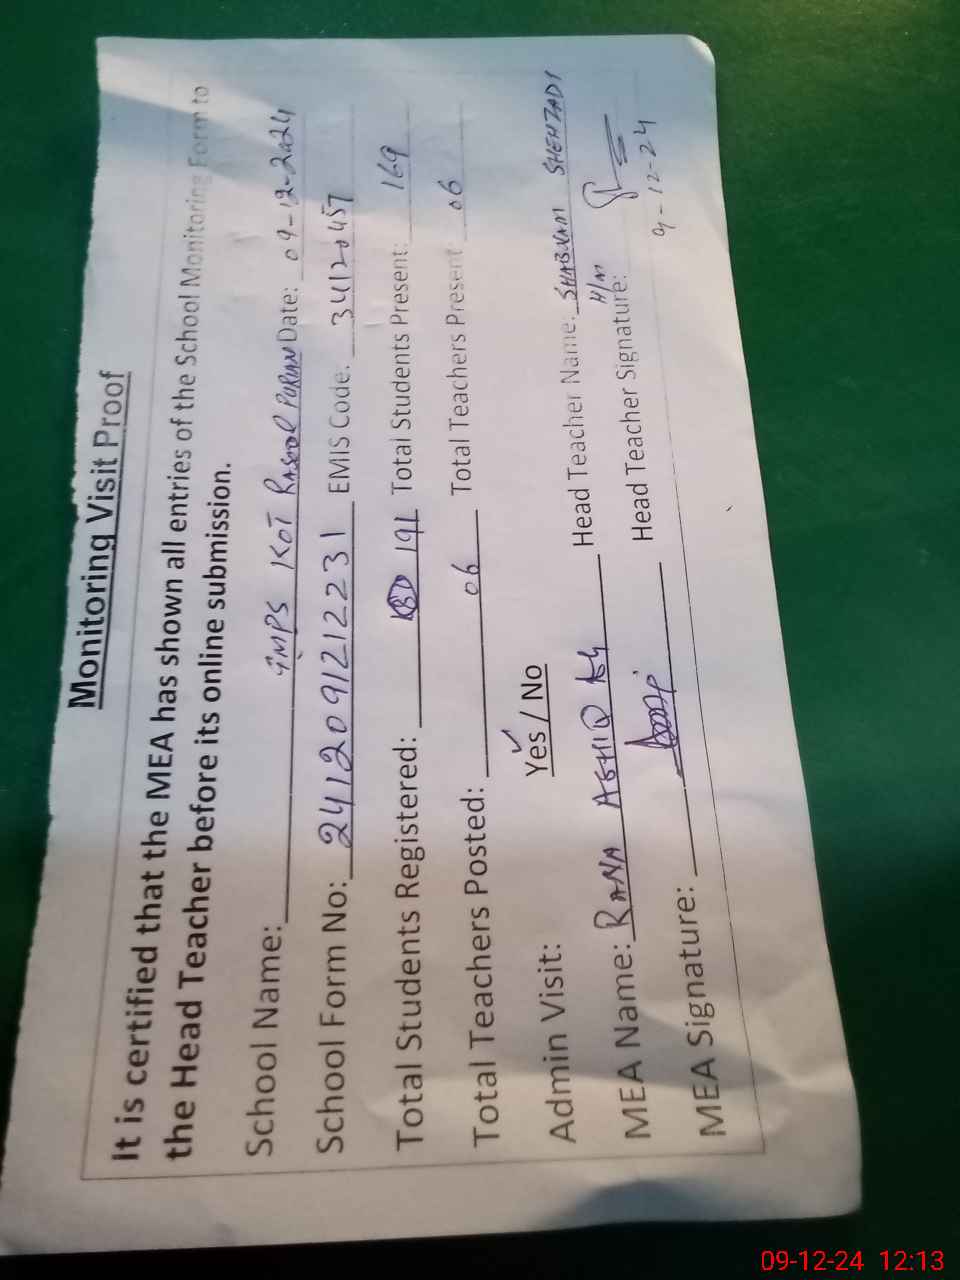 Monitoring Visit Proof
It is certified that the MEA has shown all entries of the School Monitoring Form to
the Head Teacher before its online submission.
School Name: GMPS KOT RASOOL PURIAN Date: 09-12-2024
School Form No: 2412091212231 EMIS Code: 34120457
Total Students Registered: 191 Total Students Present: 169
Total Teachers Posted: 06 Total Teachers Present: 06
Admin Visit: Yes / No
MEA Name: RANA ASHIQ Head Teacher Name: SHABNAM SHEHZADI
H/M
MEA Signature: Head Teacher Signature:
9-12-24
09-12-24 12:13